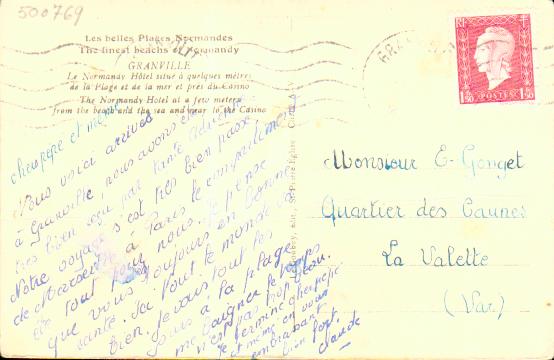 500769
Les belles Plages Normandes
The finest beachs of Normandy
GRANVILLE
Le Normandy Hôtel situé à quelques mètres
de la Plage et de la mer et près du Casino
The Normandy Hotel at a few meters
from the beach and the sea and near to the Casino
cher pépé et mémé
Nous voici arrivés
à Granville, nous avons été
très bien reçu par tante
Notre voyage s'est très bien passé
de Marseille à Paris le compartiment
de tout pour nous. Je pense
que vous toujours en bonne
santé. Ici tout le monde va
bien. Je vais tout les
jours à la plage
me baigner le temps
n'est pas trop beau.
Je termine cher pépé
et mémé en vous
embrassant
bien fort.
Claude
POSTES
1F50
1F50
Monsieur E. Gonget
Quartier des Caunes
La Valette
(Var.)